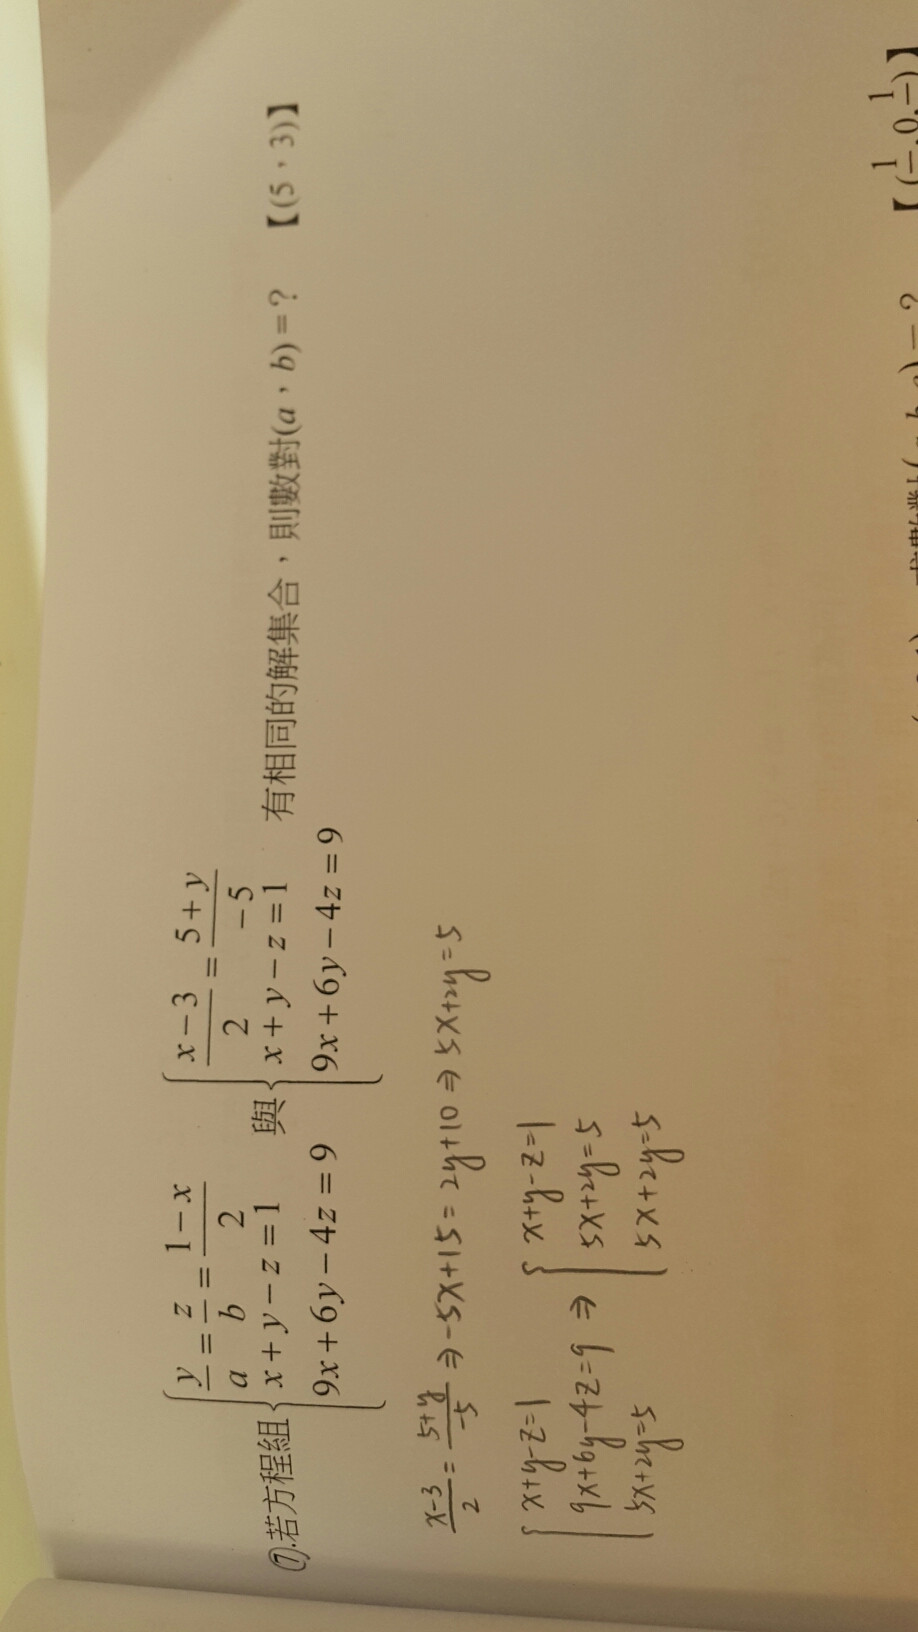 ⑦.若方程組{y/a = z/b = (1−x)/2
x+y−z=1
9x+6y−4z=9
與{(x−3)/2 = (5+y)/−5
x+y−z=1
9x+6y−4z=9
有相同的解集合，則數對(a，b)=? 【(5，3)】
(x-3)/2 = (5+y)/-5 ⇒ -5x+15=2y+10 ⇒ 5x+2y=5
{x+y-z=1
9x+6y-4z=9
5x+2y=5
⇒ {x+y-z=1
5x+2y=5
5x+2y=5